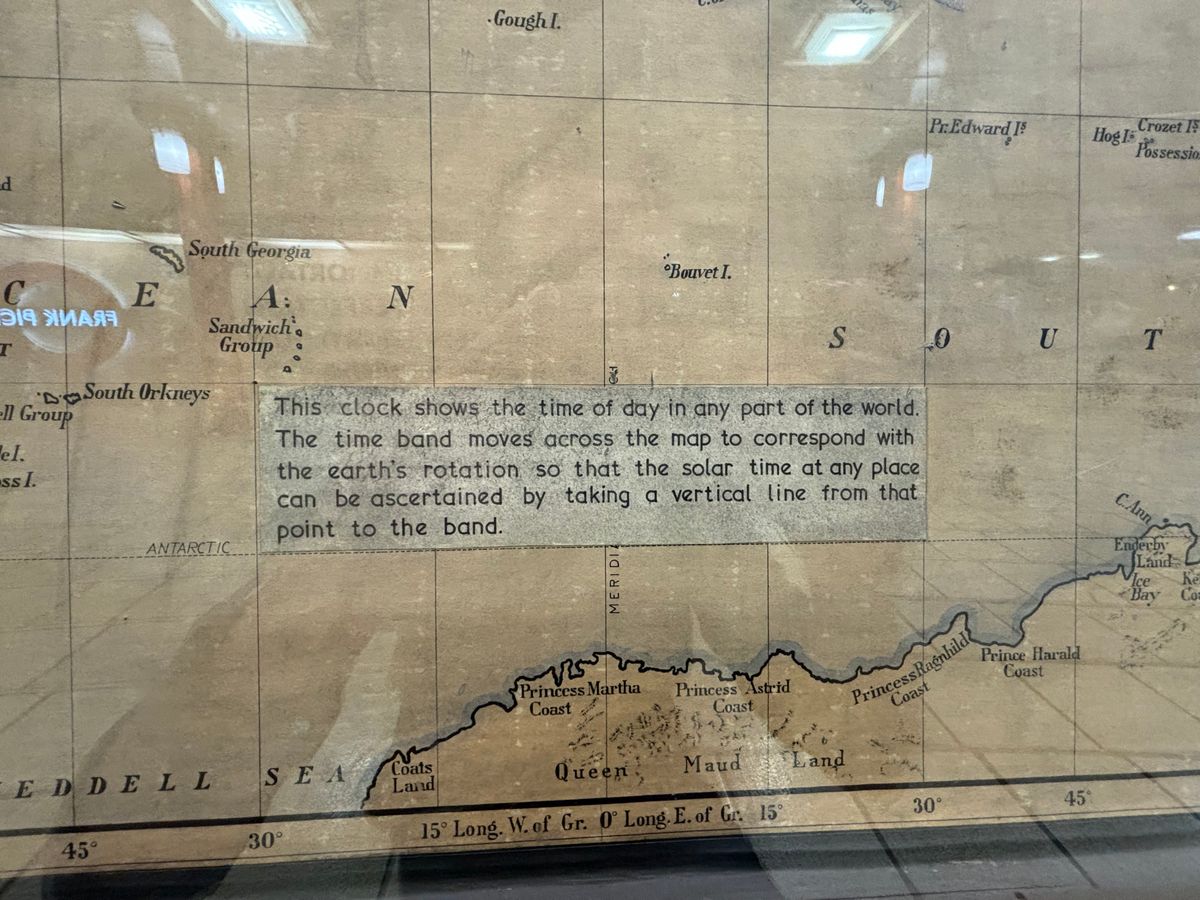 Gough I.
Pr. Edward Iˢ
Hog Iˢ
Crozet Iˢ
South Georgia
C E A N
Bouvet I.
FRANK PIC
Sandwich
Group
S O U T
South Orkneys
Group
This clock shows the time of day in any part of the world.
The time band moves across the map to correspond with
the earth's rotation so that the solar time at any place
can be ascertained by taking a vertical line from that
point to the band.
C. Ann
ANTARCTIC
Enderby
Land
Ice
Bay
MERIDI
Prince Harald
Coast
Princess Ragnhild
Coast
Princess Martha
Coast
Princess Astrid
Coast
Coats
Land
Queen Maud Land
EDDELL SEA
45° 30° 15° Long. W. of Gr. 0° Long. E. of Gr. 15° 30° 45°